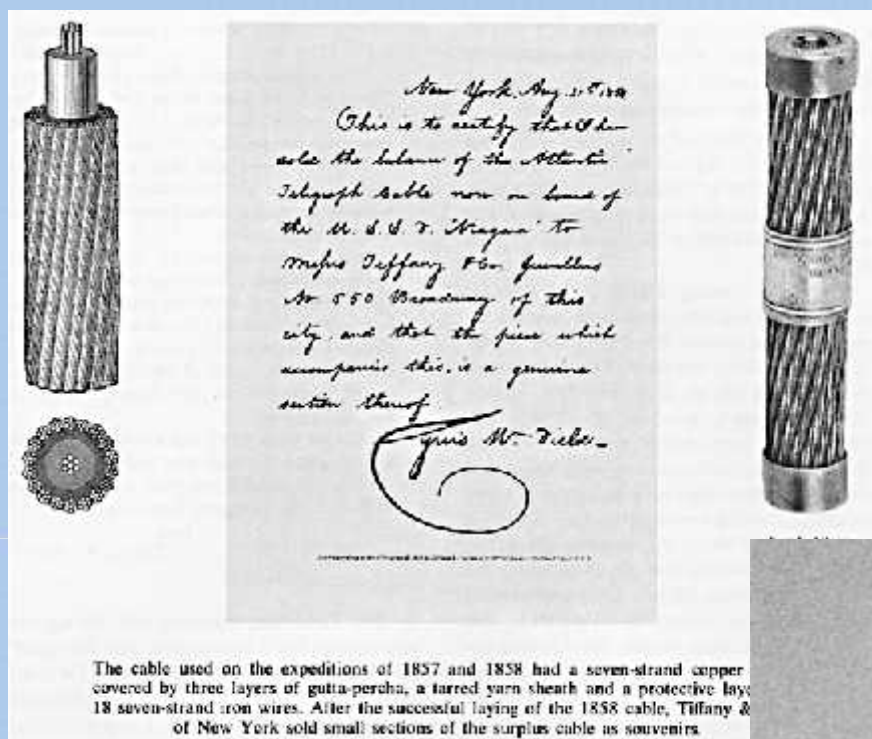 New York, Aug. 21st 1858
This is to certify that I have
sold the balance of the Atlantic
Telegraph Cable now on board of
the U. S. S. F. Niagara to
Messrs Tiffany & Co. Jewellers
No 550 Broadway of this
city, and that the piece which
accompanies this, is a genuine
section thereof.
Cyrus W. Field
The cable used on the expeditions of 1857 and 1858 had a seven-strand copper
covered by three layers of gutta-percha, a tarred yarn sheath and a protective
18 seven-strand iron wires. After the successful laying of the 1858 cable, Tiffany &
of New York sold small sections of the surplus cable as souvenirs.